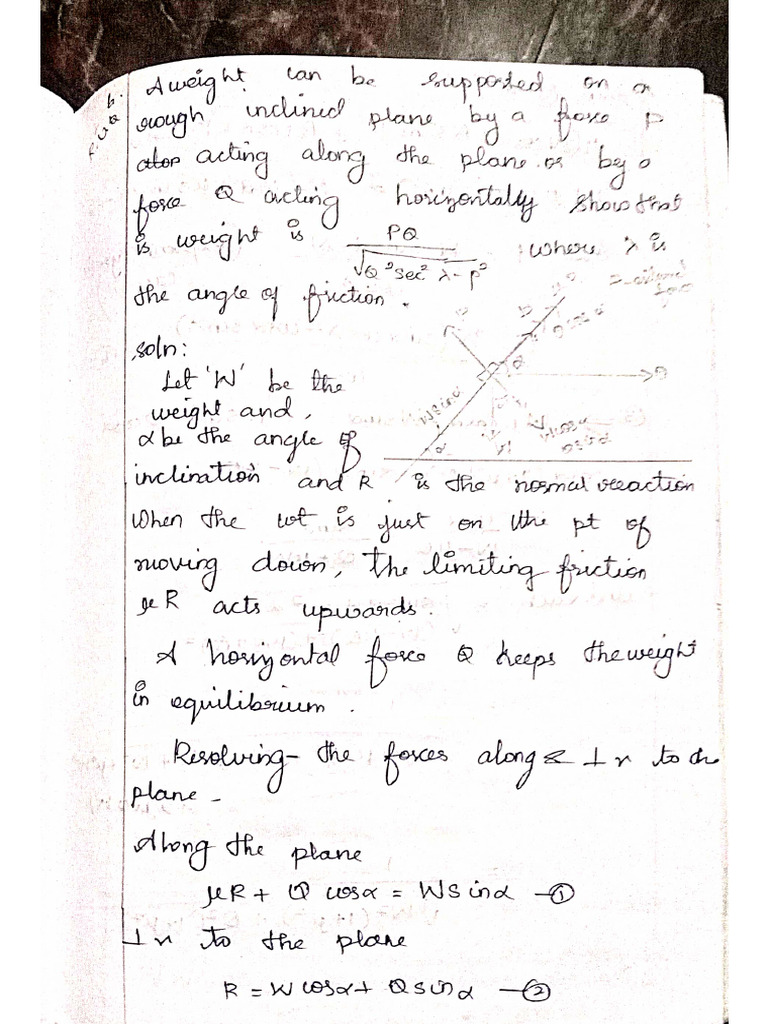 6.
A weight can be supported on a
rough inclined plane by a force P
acting along the plane or by a
force Q acting horizontally show that
is weight is PQ / √Q² sec² λ - P² where λ is
the angle of friction.
soln:
Let 'W' be the
weight and,
α be the angle of
inclination and R is the normal reaction
When the wt is just on the pt of
moving down, the limiting friction
μR acts upwards.
A horizontal force Q keeps the weight
in equilibrium.
Resolving the forces along & ⊥r to the
plane -
Along the plane
μR + Q cosα = W sinα —①
⊥r to the plane
R = W cosα + Q sinα —②
W sinα
α
Q